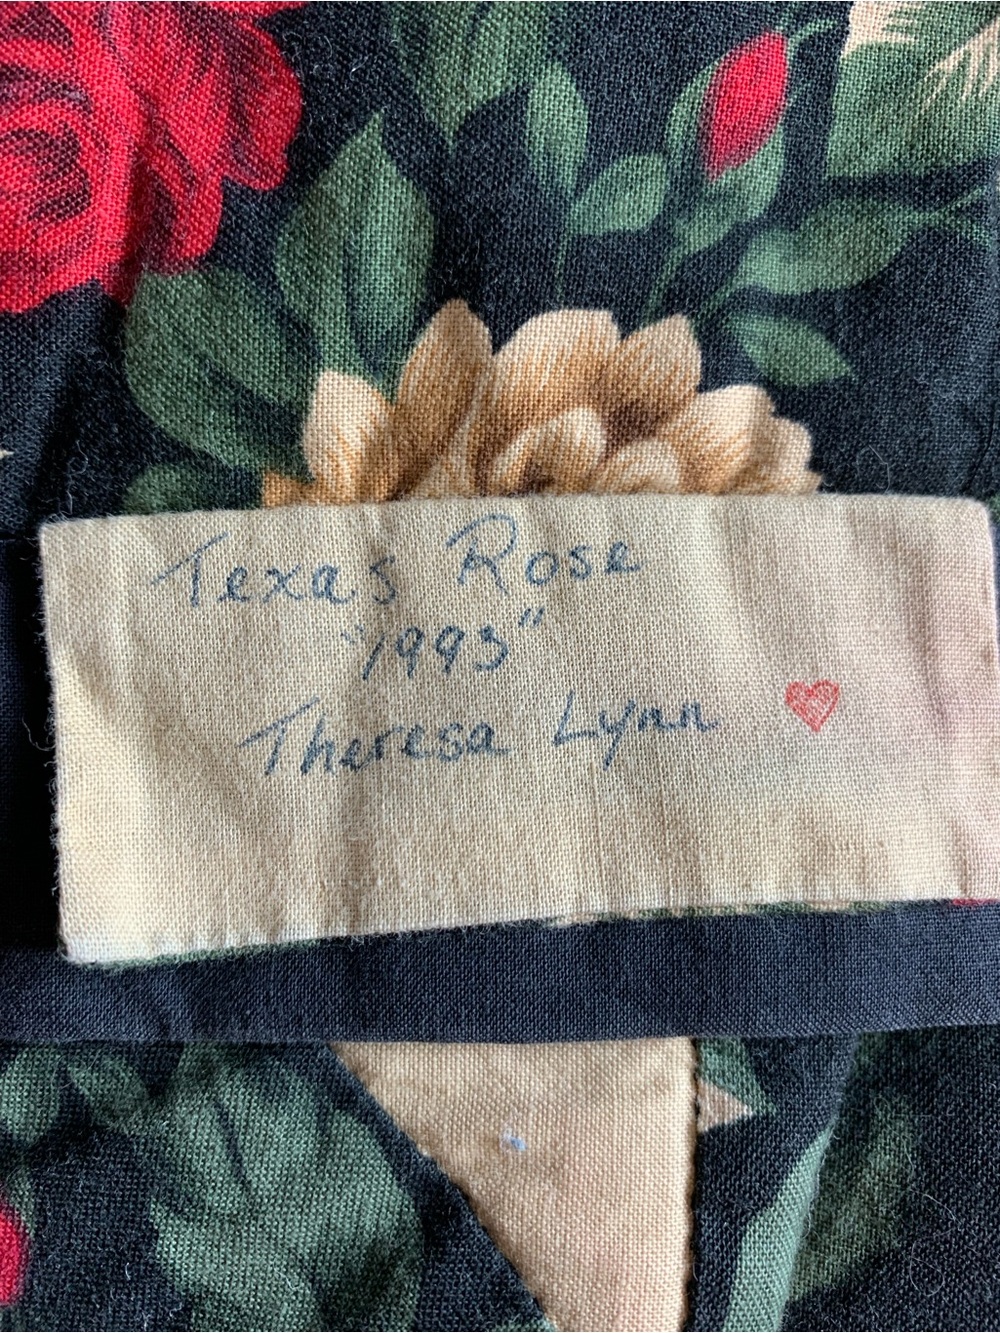 Texas Rose
"1993"
Theresa Lynn